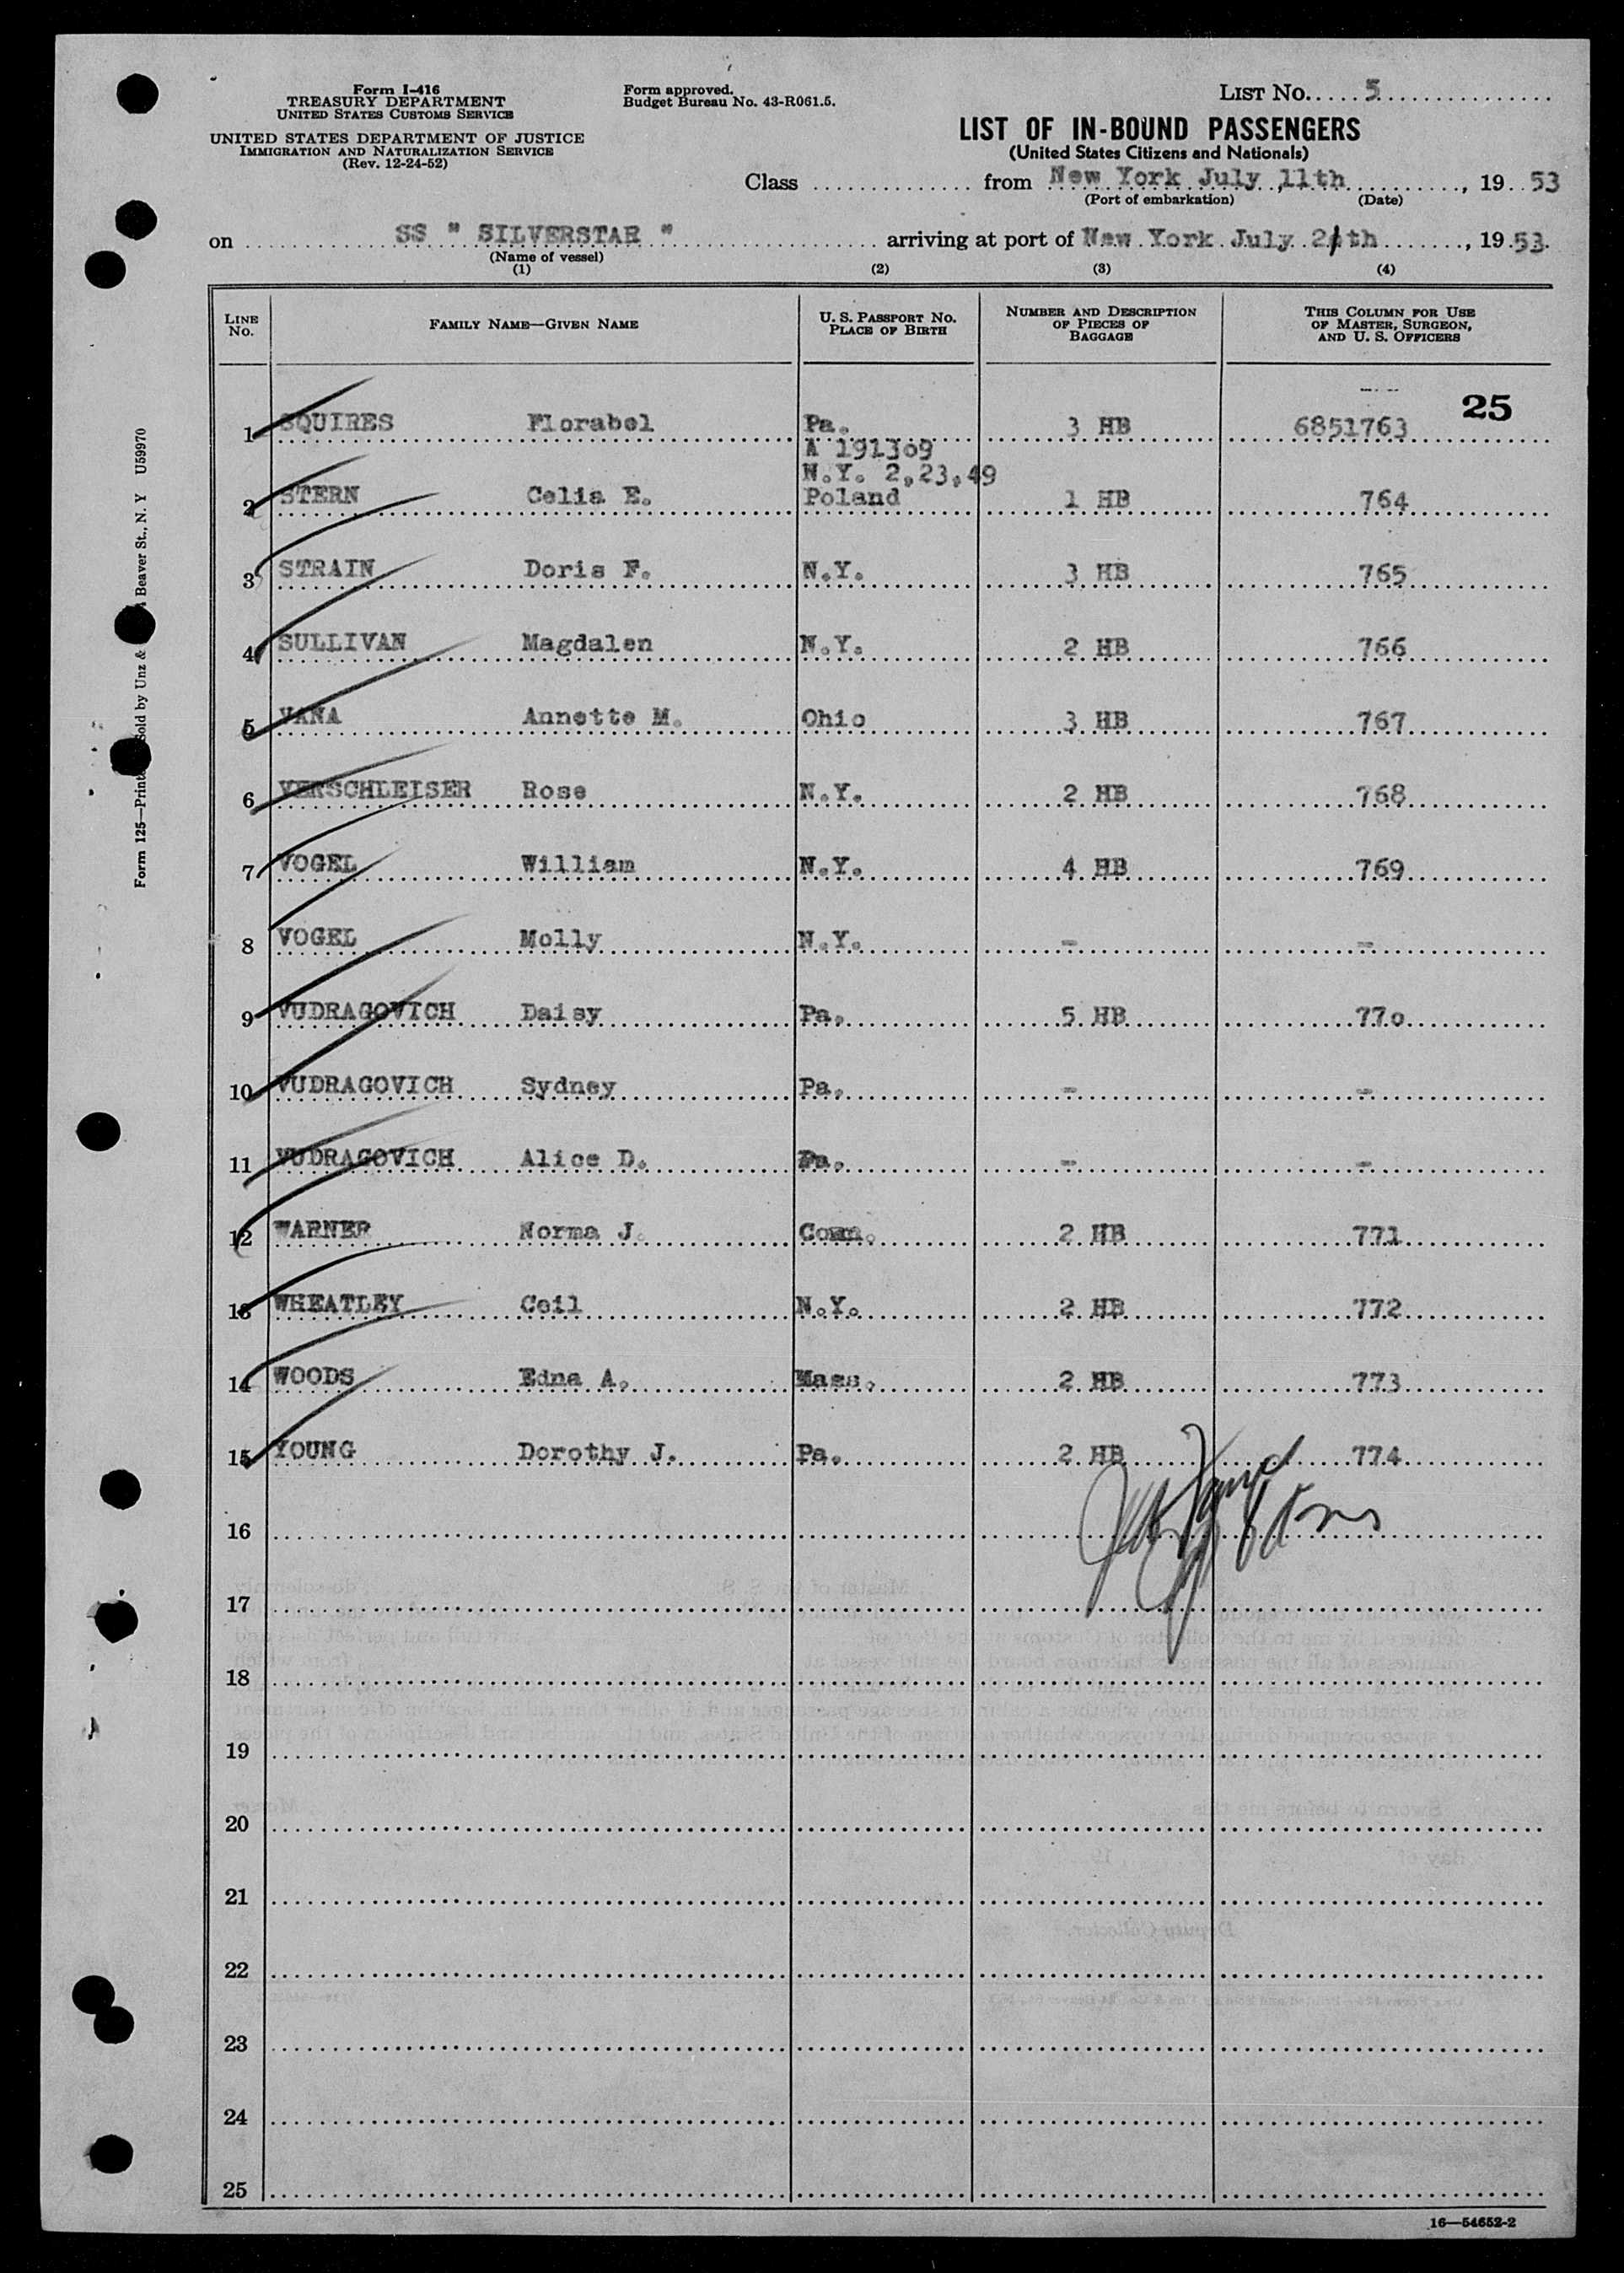 Form I-416
TREASURY DEPARTMENT
UNITED STATES CUSTOMS SERVICE
UNITED STATES DEPARTMENT OF JUSTICE
IMMIGRATION AND NATURALIZATION SERVICE
(Rev. 12-24-52)
Form approved.
Budget Bureau No. 43-R061.5.
LIST No. 5
LIST OF IN-BOUND PASSENGERS
(United States Citizens and Nationals)
Class from New York July 11th, 19 53
(Port of embarkation) (Date)
on SS " SILVERSTAR " arriving at port of New York July th, 19 53.
(Name of vessel)
(1) (2) (3) (4)
LINE No. FAMILY NAME—GIVEN NAME U. S. PASSPORT No. PLACE OF BIRTH NUMBER AND DESCRIPTION OF PIECES OF BAGGAGE THIS COLUMN FOR USE OF MASTER, SURGEON, AND U. S. OFFICERS
25
1 SQUIRES Florabel Pa. 3 HB 6851763
A 191309
N.Y. 2,23,49
2 STERN Celia E. Poland 1 HB 764
3 STRAIN Doris F. N.Y. 3 HB 765
4 SULLIVAN Magdalen N.Y. 2 HB 766
5 VANA Annette M. Ohio 3 HB 767
6 VERSCHLEISER Rose N.Y. 2 HB 768
7 VOGEL William N.Y. 4 HB 769
8 VOGEL Molly N.Y. - -
9 VUDRAGOVICH Daisy Pa. 5 HB 770
10 VUDRAGOVICH Sydney Pa. - -
11 VUDRAGOVICH Alice D. Pa. - -
12 WARNER Norma J. Conn. 2 HB 771
13 WHEATLEY Ceil N.Y. 2 HB 772
14 WOODS Edna A. Mass. 2 HB 773
15 YOUNG Dorothy J. Pa. 2 HB 774
16
17
18
19
20
21
22
23
24
25
16—54652-2
Form 125—Printed Sold by Unz & Beaver St., N. Y U59970